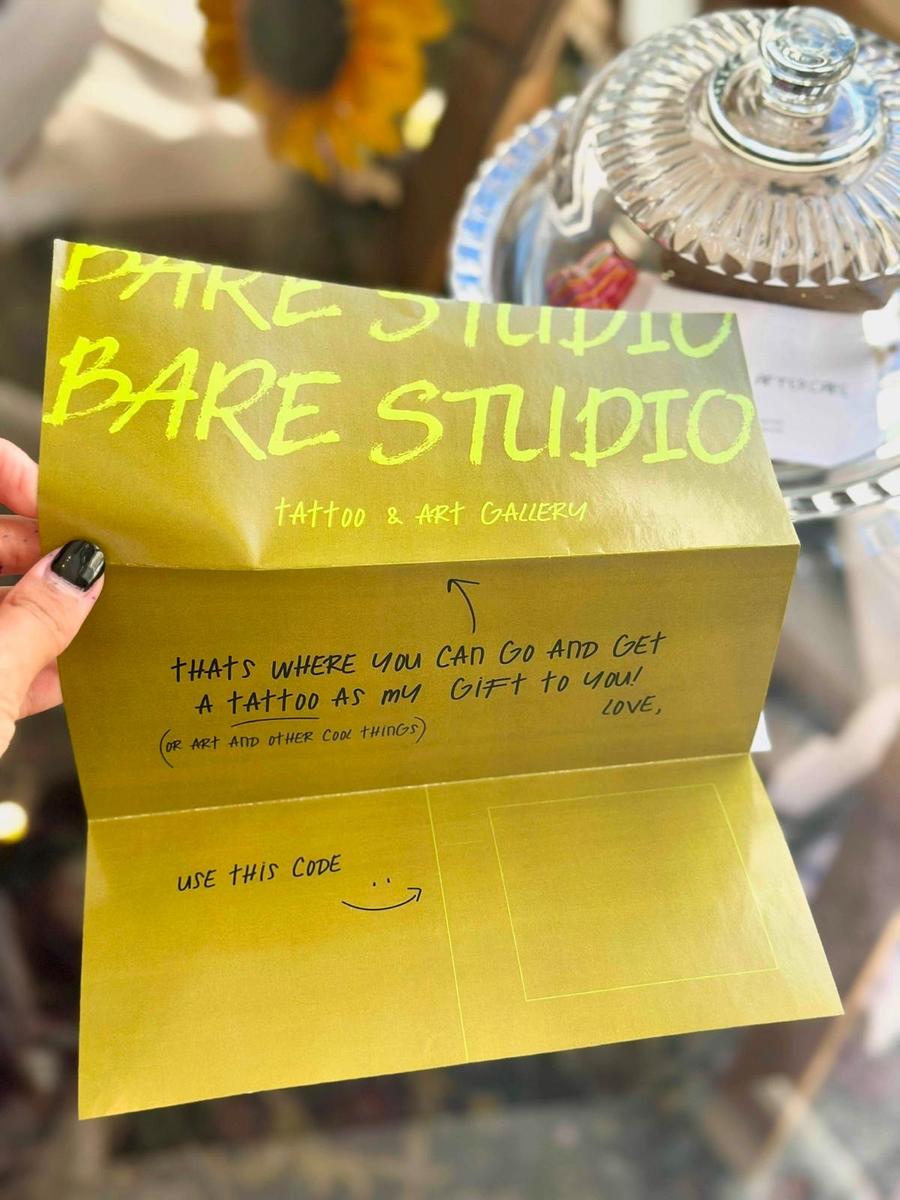 BARE STUDIO
BARE STUDIO
tATTOO & ART GALLERY
tHATS WHERE YOU CAN GO AND GET
A tATTOO AS MY GIFT TO YOU!
LOVE,
(OR ART AND OTHER COOL THINGS)
USE THIS CODE
AFTERCARE